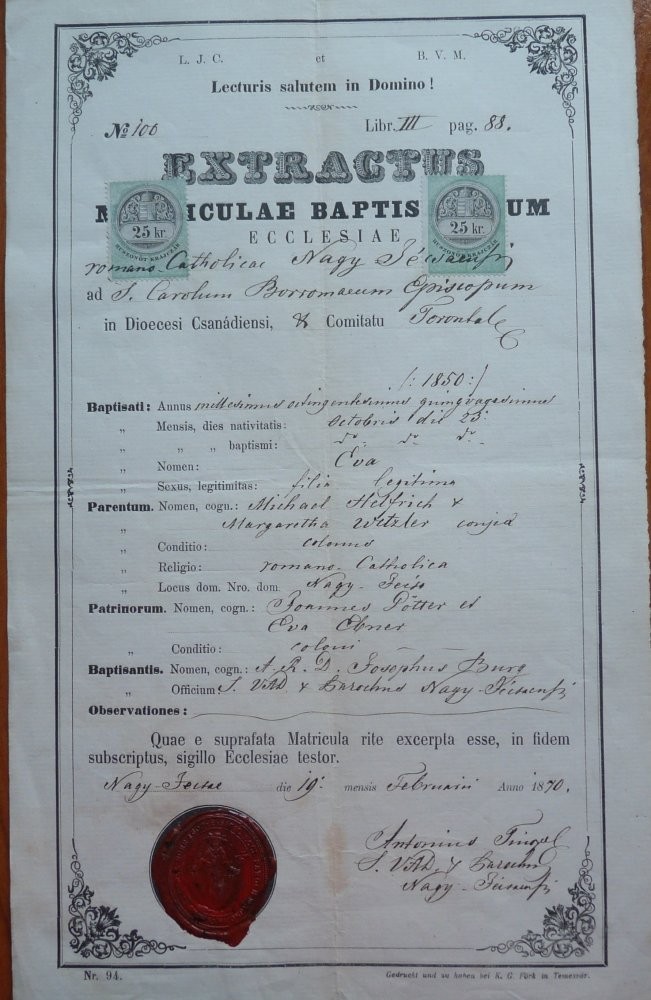 L. J. C. et B. V. M.
Lecturis salutem in Domino!
No 100 Libr. III pag. 88.
EXTRACTUS
M ICULAE BAPTIS UM
25 kr. 25 kr.
HUSZONÖT KRAJCZÁR HUSZONÖT KRAJCZÁR
ECCLESIAE
romano Catholicae Nagy
ad S. Carolum Borromaeum Episcopum
in Dioecesi Csanádiensi, & Comitatu Torontal
/: 1850 :/
Baptisati: Annus millesimus octingentesimus quinquagesimus
„ Mensis, dies nativitatis: Octobris die 25
„ „ „ baptismi: dto dto dto
„ Nomen: Eva
„ Sexus, legitimitas: filia legitima
Parentum. Nomen, cogn.: Michael Helfrich &
„ Margaretha Wetzler
„ Conditio: colonus
„ Religio: romano Catholica
„ Locus dom. Nro. dom. Nagy-
Patrinorum. Nomen, cogn.: Joannes Potter et
Eva Ebner
„ Conditio: coloni
Baptisantis. Nomen, cogn.: A. R. D. Josephus Burg
„ Officium S. & Parochus Nagy-
Observationes:
Quae e suprafata Matricula rite excerpta esse, in fidem
subscriptus, sigillo Ecclesiae testor.
Nagy- die 19: mensis Februarii Anno 1870.
Antonius
S. &
Nagy-
Nr. 94. Gedruckt und zu haben bei K. G. Förk in Temesvár.